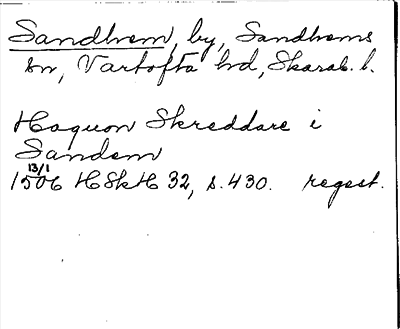 Sandhem, by, Sandhems
sn, Vartofta hd, Skarab. l.
Haquon Skreddare i
Sandem
13/1
1506 HSkH 32, s. 430. regest.